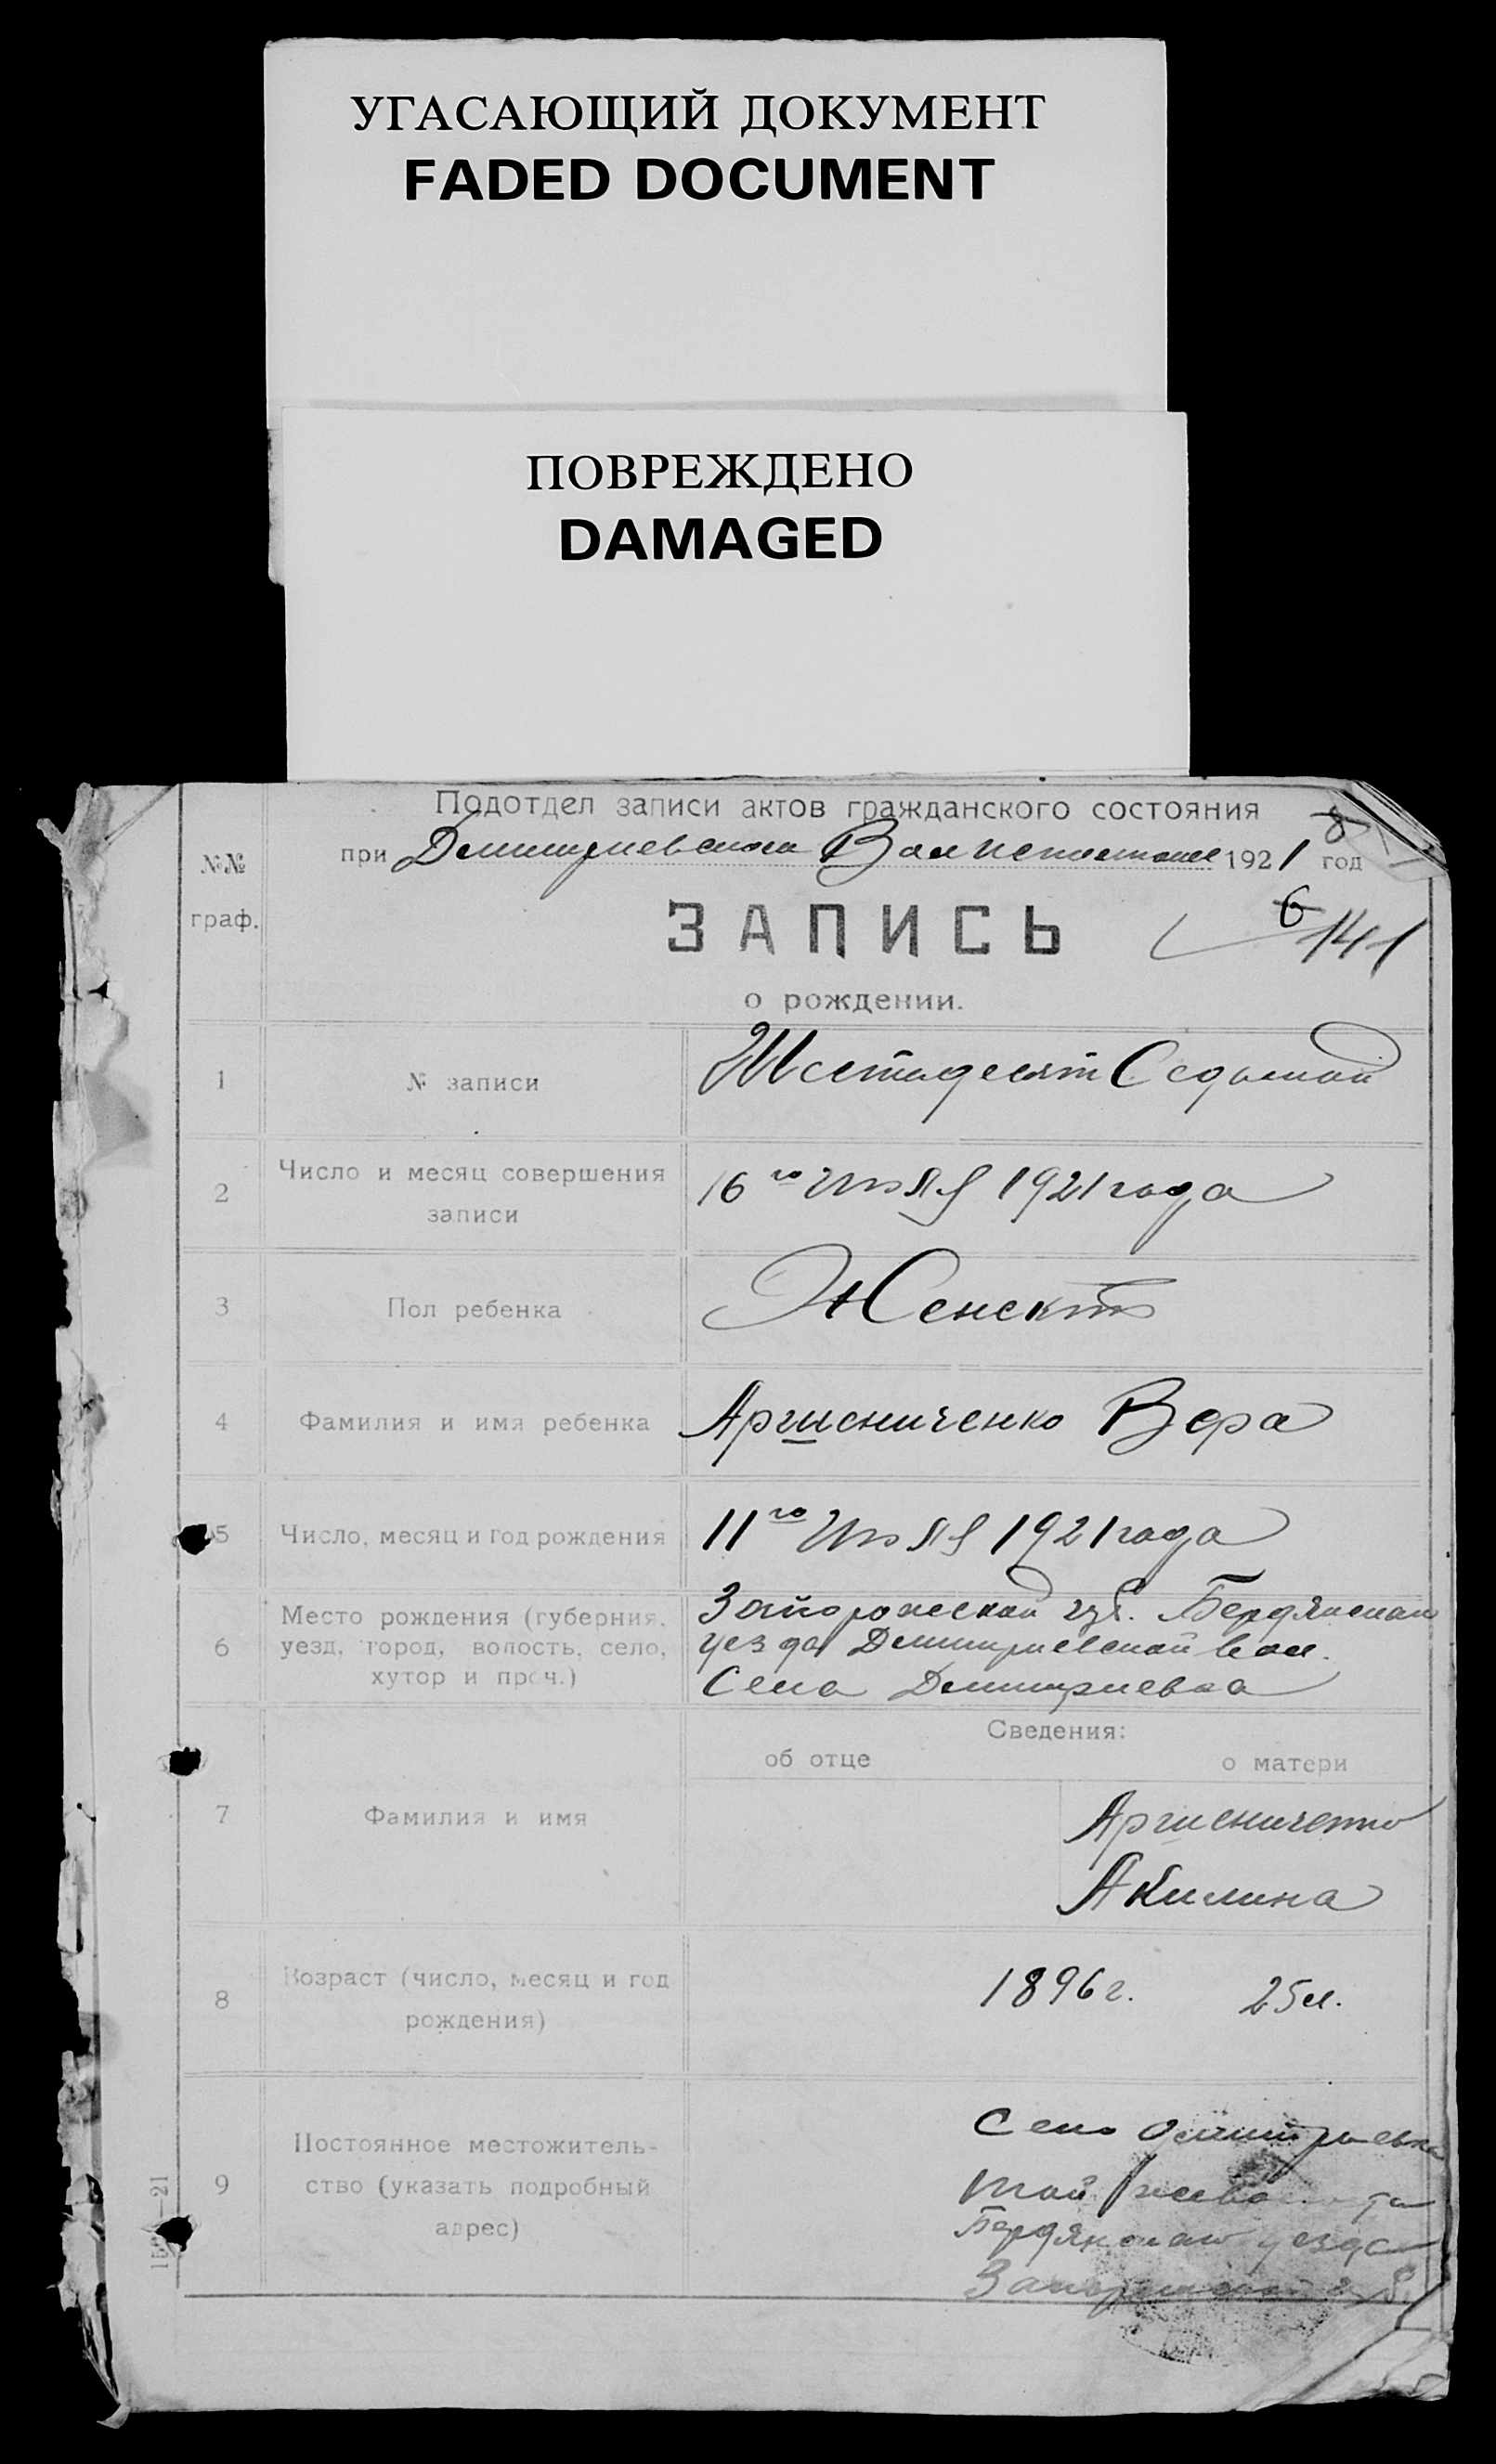 УГАСАЮЩИЙ ДОКУМЕНТ
FADED DOCUMENT
ПОВРЕЖДЕНО
DAMAGED
Подотдел записи актов гражданского состояния
8
№№
граф.
при Димитриевском Волисполкоме 1921 год
ЗАПИСЬ
6
141
о рождении.
1 № записи Шестьдесят Седьмой
2 Число и месяц совершения
записи
16го Июля 1921 года
3 Пол ребенка Женский
4 Фамилия и имя ребенка Вера
5 Число, месяц и год рождения 11го Июля 1921 года
6 Место рождения (губерния,
уезд, город, волость, село,
хутор и проч.)
Запорожской губ. Бердянского
уезда Димитриевской вол.
Села Димитриевка
Сведения:
об отце о матери
7 Фамилия и имя
Акилина
8 Возраст (число, месяц и год
рождения)
1896 г. 25 л.
9 Постоянное местожитель-
ство (указать подробный
адрес)
Село Димитриевка
той же
Бердянского уезда
Запорожской губ.